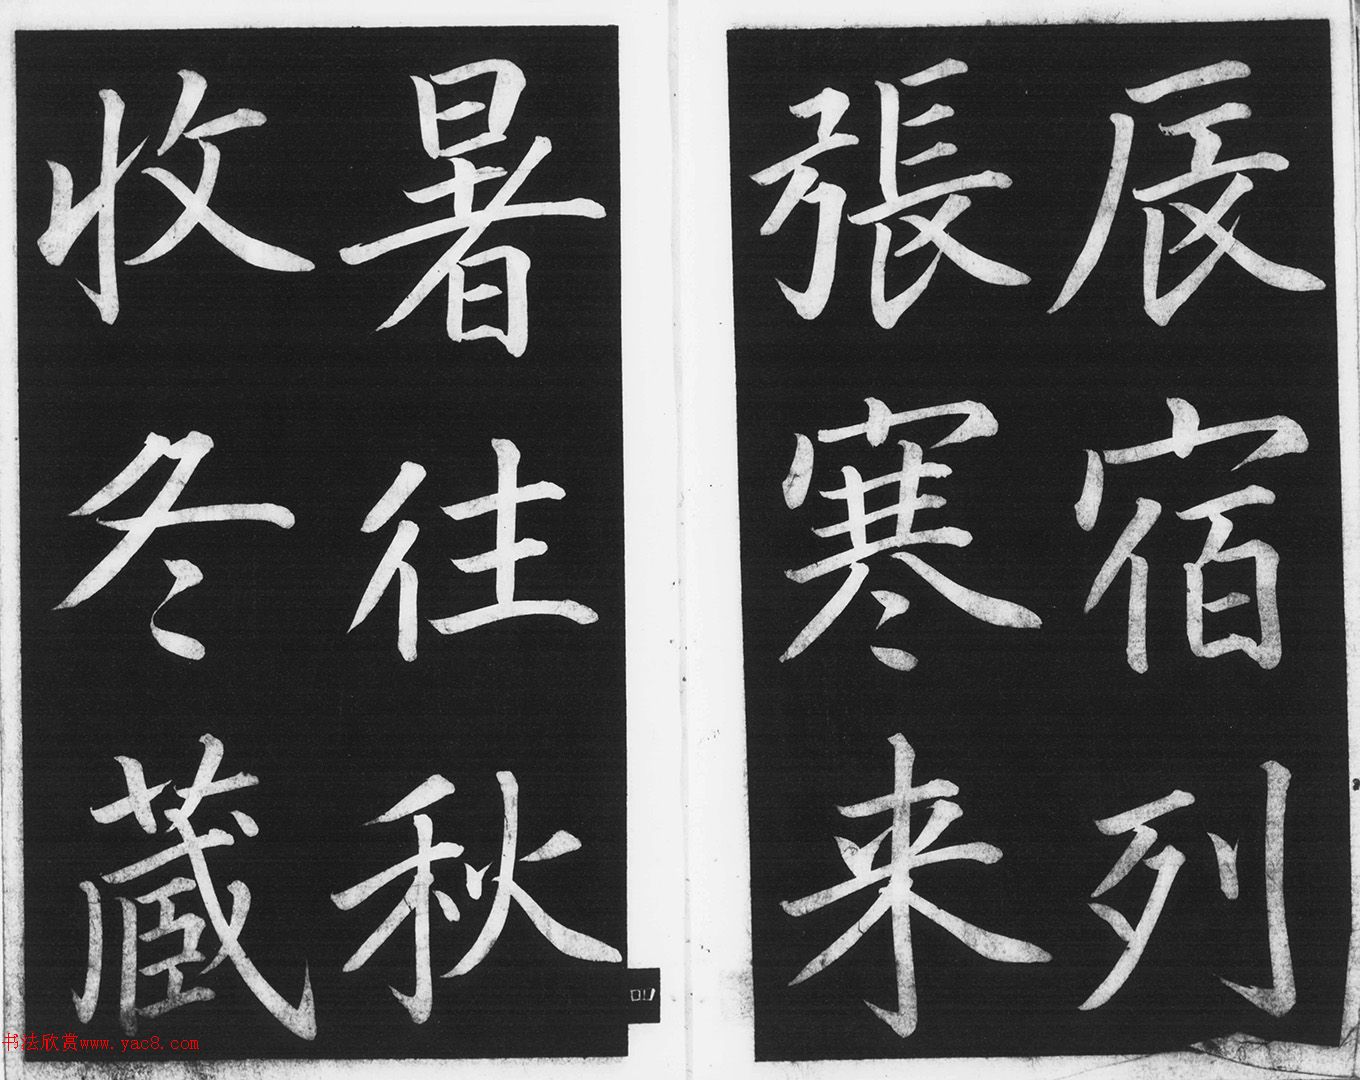 辰宿列
張寒来
暑往秋
收冬蔵
书法欣赏www.yac8.com